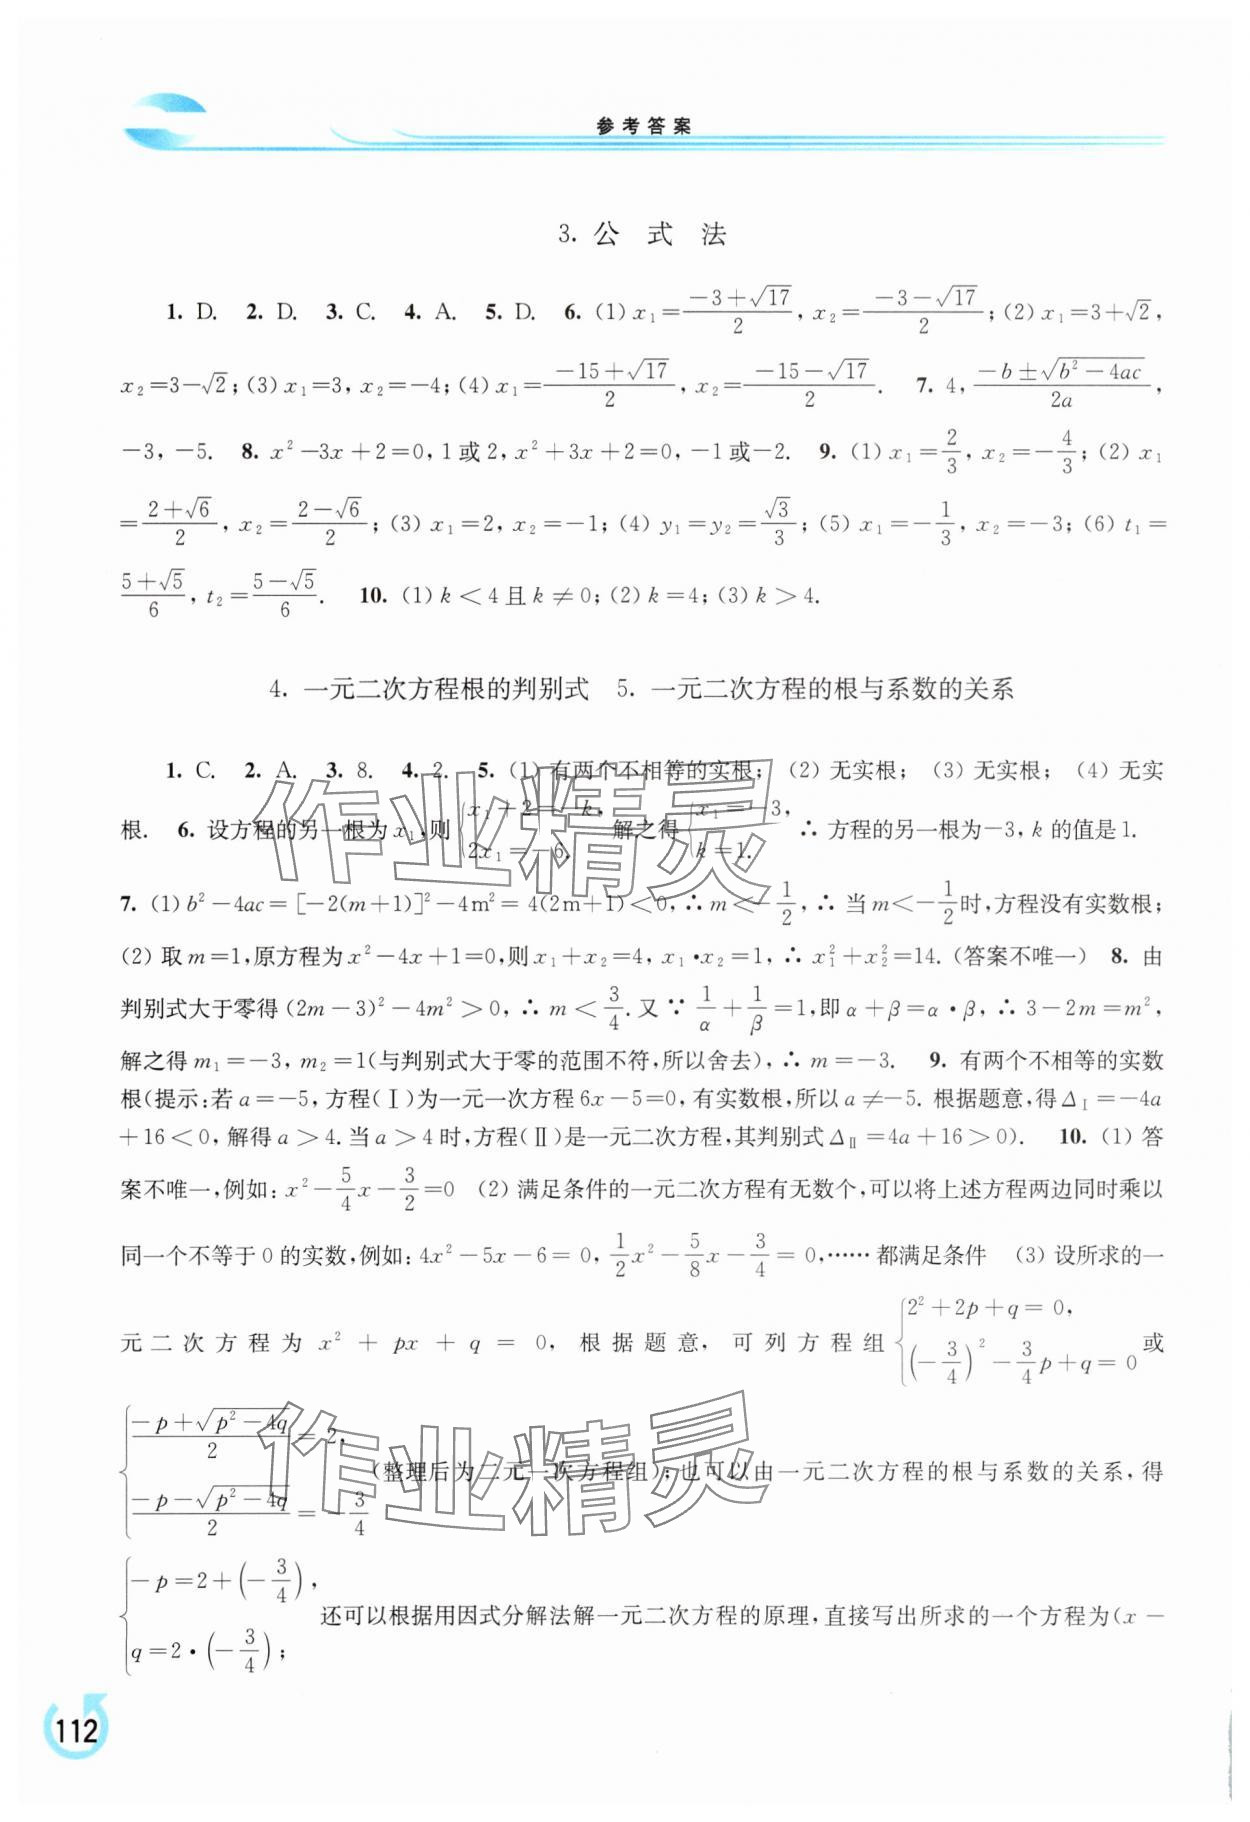 参考答案
3. 公 式 法
1. D. 2. D. 3. C. 4. A. 5. D. 6. (1) x₁=(-3+√17)/2, x₂=(-3-√17)/2; (2) x₁=3+√2,
x₂=3-√2; (3) x₁=3, x₂=-4; (4) x₁=(-15+√17)/2, x₂=(-15-√17)/2. 7. 4, (-b±√(b²-4ac))/2a,
-3, -5. 8. x²-3x+2=0, 1 或 2, x²+3x+2=0, -1 或-2. 9. (1) x₁=2/3, x₂=-4/3; (2) x₁
=(2+√6)/2, x₂=(2-√6)/2; (3) x₁=2, x₂=-1; (4) y₁=y₂=√3/3; (5) x₁=-1/3, x₂=-3; (6) t₁=
(5+√5)/6, t₂=(5-√5)/6. 10. (1) k<4 且 k≠0; (2) k=4; (3) k>4.
4. 一元二次方程根的判别式 5. 一元二次方程的根与系数的关系
1. C. 2. A. 3. 8. 4. 2. 5. (1) 有两个不相等的实根; (2) 无实根; (3) 无实根; (4) 无实
根. 6. 设方程的另一根为 x₁,则 {x₁+2=-k, 2x₁=-6. 解之得 {x₁=-3, k=1. ∴ 方程的另一根为-3, k 的值是 1.
7. (1) b²-4ac=[-2(m+1)]²-4m²=4(2m+1)<0, ∴ m<-1/2, ∴ 当 m<-1/2时,方程没有实数根;
(2) 取 m=1,原方程为 x²-4x+1=0,则 x₁+x₂=4, x₁·x₂=1, ∴ x₁²+x₂²=14. (答案不唯一) 8. 由
判别式大于零得 (2m-3)²-4m²>0, ∴ m<3/4. 又 ∵ 1/α+1/β=1,即 α+β=α·β, ∴ 3-2m=m²,
解之得 m₁=-3, m₂=1(与判别式大于零的范围不符,所以舍去), ∴ m=-3. 9. 有两个不相等的实数
根(提示:若 a=-5, 方程(Ⅰ)为一元一次方程 6x-5=0, 有实数根,所以 a≠-5. 根据题意,得 Δ_Ⅰ=-4a
+16<0, 解得 a>4. 当 a>4 时,方程(Ⅱ)是一元二次方程,其判别式 Δ_Ⅱ=4a+16>0). 10. (1) 答
案不唯一,例如: x²-5/4x-3/2=0 (2) 满足条件的一元二次方程有无数个,可以将上述方程两边同时乘以
同一个不等于 0 的实数,例如: 4x²-5x-6=0, 1/2x²-5/8x-3/4=0,……都满足条件 (3) 设所求的一
元二次方程为 x²+px+q=0, 根据题意, 可列方程组 {2²+2p+q=0, (-3/4)²-3/4p+q=0 或
{(-p+√(p²-4q))/2=2, (-p-√(p²-4q))/2=-3/4 (整理后为二元一次方程组);也可以由一元二次方程的根与系数的关系,得
{-p=2+(-3/4), q=2·(-3/4); 还可以根据用因式分解法解一元二次方程的原理,直接写出所求的一个方程为(x-
112
作业精灵
作业精灵